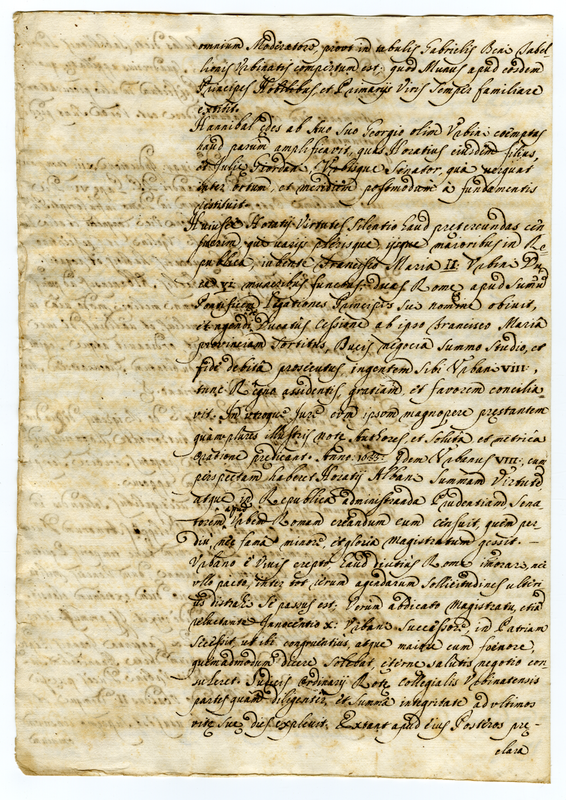 omnium Moderatore, prout in tabulis Gabrielis Beni Tabel-
lionis Urbinatis compertum est: quod Munus apud eosdem
Principes Nobilibus et Primarijs Viris semper familiare
extitit.
Hannibal ędes ab Avo suo Georgio olim Urbini coemptas
haud parum amplificavit, quas Horatius eiusdem filius,
et Julię Giordanę, Urbisque Senator, qua vergunt
inter ortum, et meridiem postmodum à fundamentis
restituit.
Huiusce Horatij Virtutes silentio haud pretereundas cen
fuerim, qui varijs plerisque, ijsque maioribus in Re
publica, iubente Francisco Maria II: Urbini Du
ce VI: muneribus functus, duas Romę apud Summū
Pontificem Legationes Principis Sui nomine obivit,
et agendi Ducatus Cessione ab ipso Francisco Maria
provinciam sortitus, Ducis negocia summo studio, et
fide debita prosecutus, ingentem sibi Urbani VIII:,
tunc Regno assidentis gratiam, et favorem concilia
vit. In utroque Jure eum ipsum magnopere prestantem
quamplures illustris notę Authores, et soluta, et metrica
oratione predicant. Anno 1633: idem Urbanus VIII: cum
perspectam haberet Horatij Albani Summam Virtutē
atque in Republica administranda Prudentiam Sena
torem apud Urbem Romam creandum eum censuit, quem per
diu, nec fama minore, et gloria Magistratum gessit. -
Urbano è vivis erepto, haud diutius Romę morare, nec
ullo pacto, inter tot rerum agendarum sollicitudines ulteri
us distrahi se passus est. Verum abdicato Magistratu, etiā
reluctante Innocentio X: Urbani Successore in Patriam
secessit, ubi congruentius, atque maiore cum foenore,
quemadmodum dicere solebat, ęternę salutis negotio con
suleret. Judicis Ordinarij Rotę Collegialis Urbinatensis
partes quam diligenter, et Summa integritate ad ultimos
vitę suę dies explevit. Extant apud eius Posteros prę-
clara